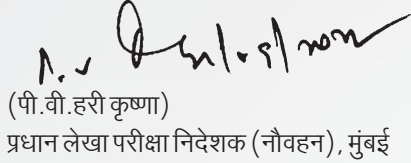 (पी.वी.हरी कृष्णा)
प्रधान लेखा परीक्षा निदेशक (नौवहन), मुंबई